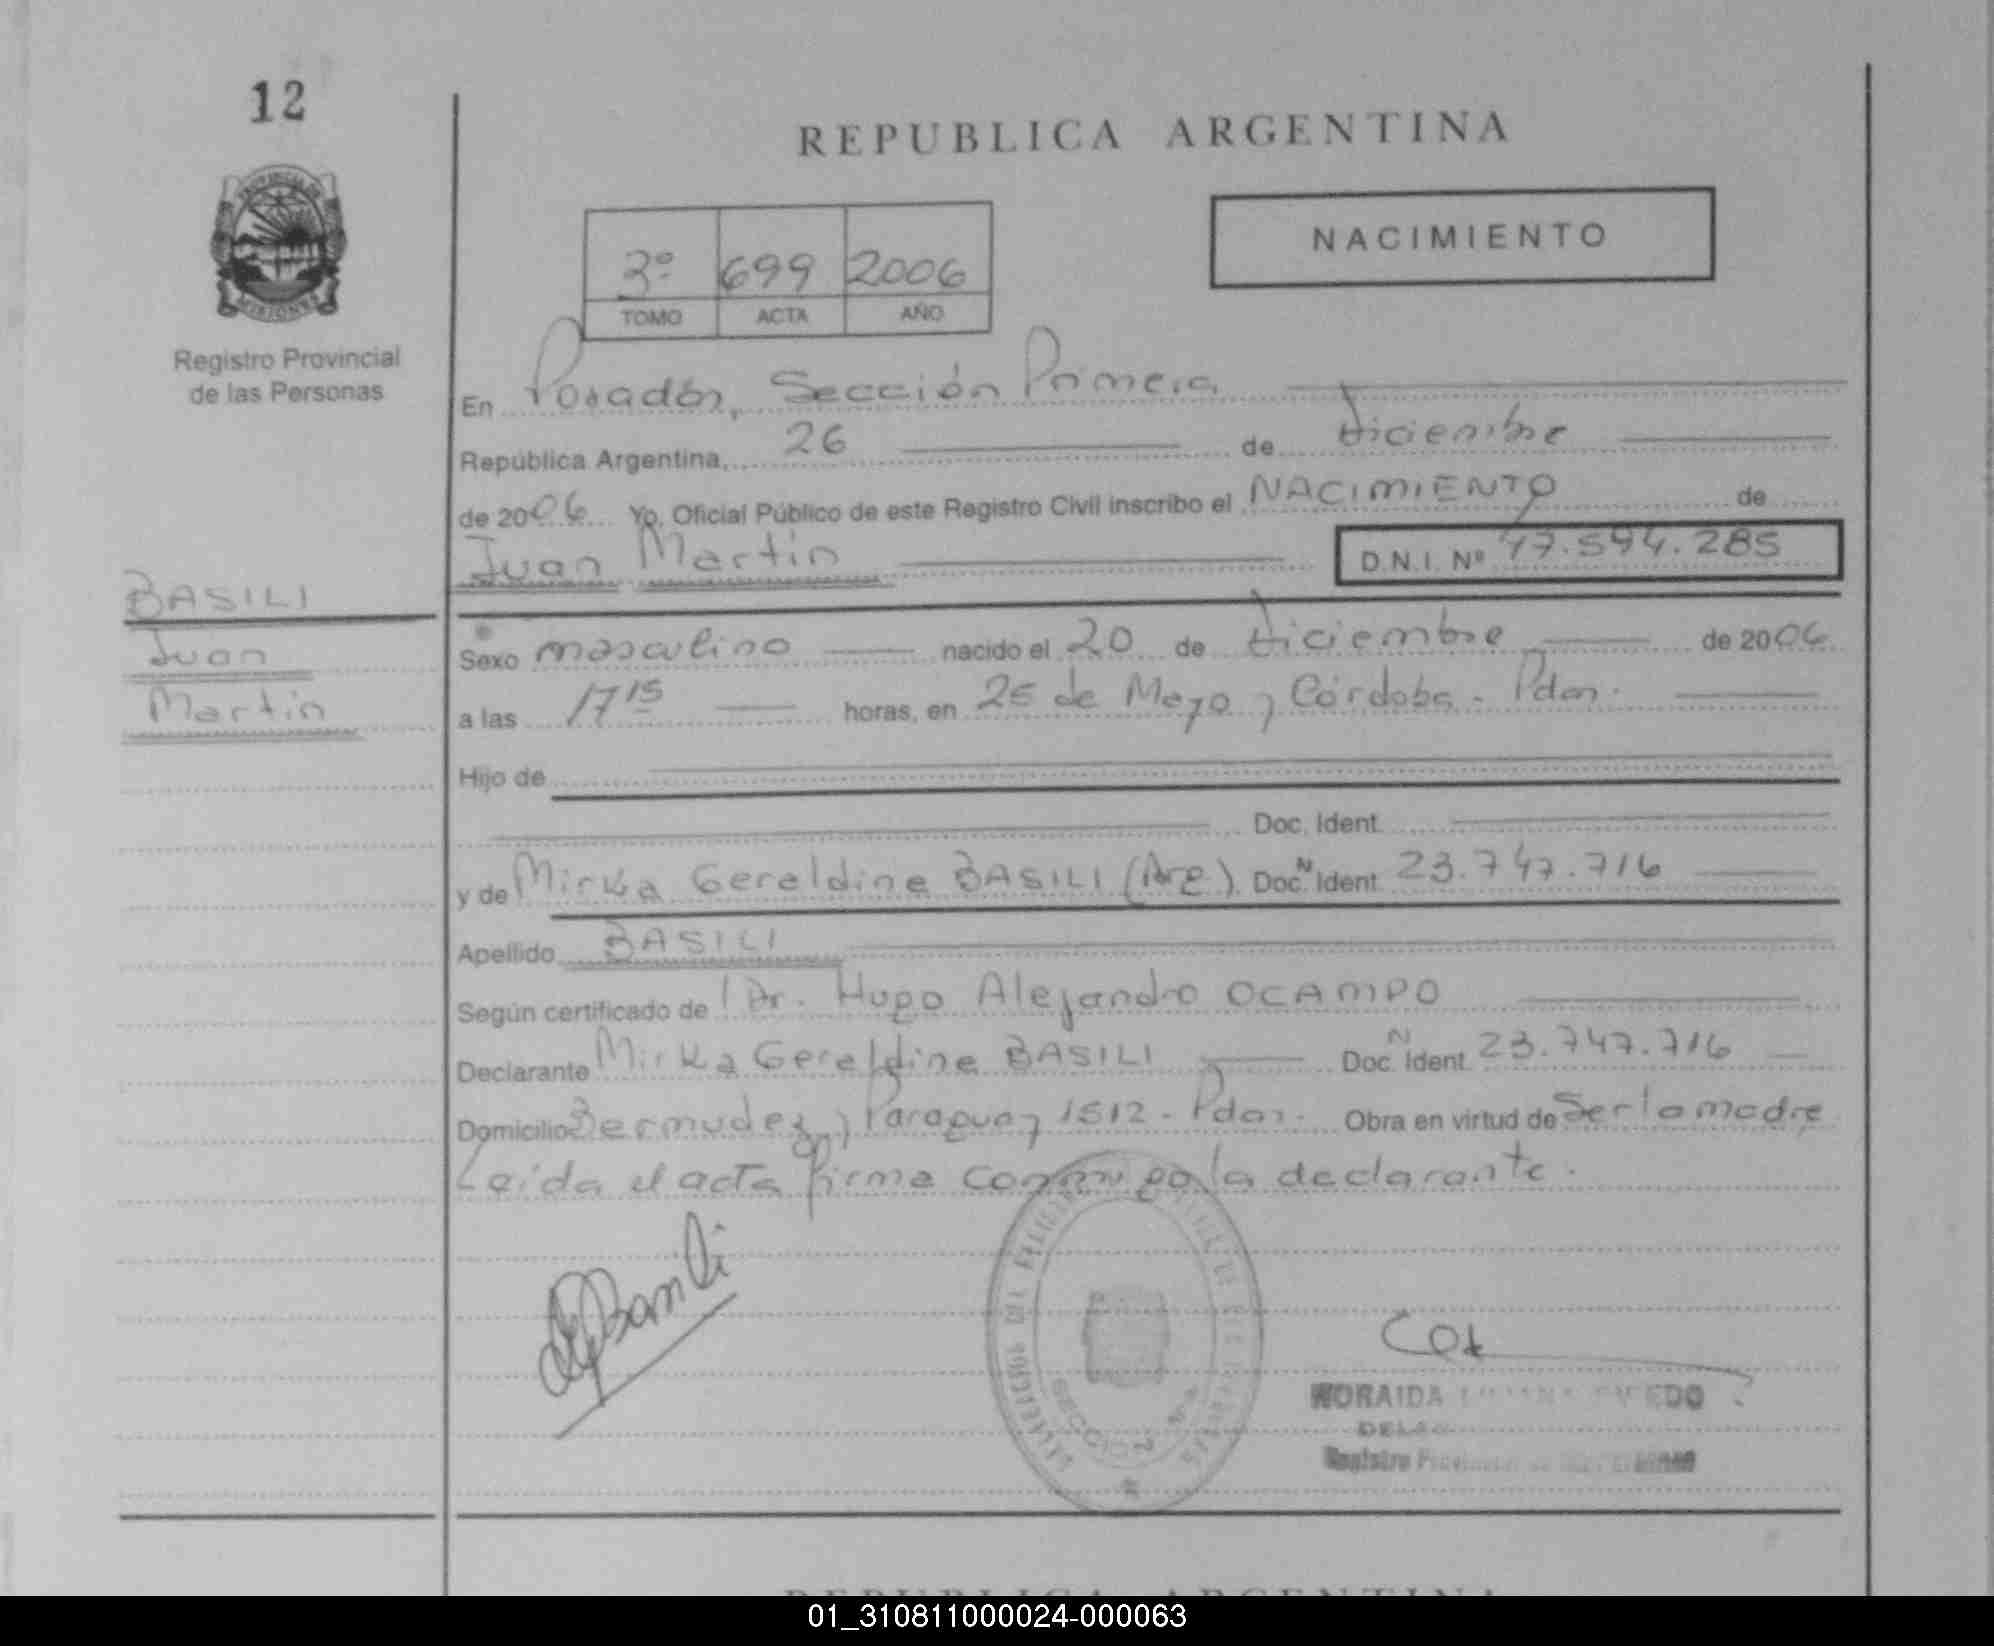 12
REPUBLICA ARGENTINA
NACIMIENTO
PROVINCIA DE
MISIONES
Registro Provincial
de las Personas
3º 699 2006
TOMO ACTA AÑO
En Posadas, Sección Primera
República Argentina, 26 de diciembre
de 2006 Yo, Oficial Público de este Registro Civil inscribo el NACIMIENTO de
Juan Martin D.N.I. Nº 47.594.285
BASILI
Juan
Martin
Sexo masculino nacido el 20 de diciembre de 2006
a las 17 15 horas, en 25 de Mayo y Córdoba - Pdas.
Hijo de
Doc. Ident.
y de Mirka Geraldine BASILI (Arg). Doc. N Ident. 23.747.716
Apellido BASILI
Según certificado de Dr. Hugo Alejandro OCAMPO
Declarante Mirka Geraldine BASILI Doc. N Ident. 23.747.716
Domicilio Bermudez y Paraguay 1512 - Pdas. Obra en virtud de Ser la madre
Leída el acta firma conmigo la declarante.
Basili
SECCION
NORAIDA
Registro
01_310811000024-000063